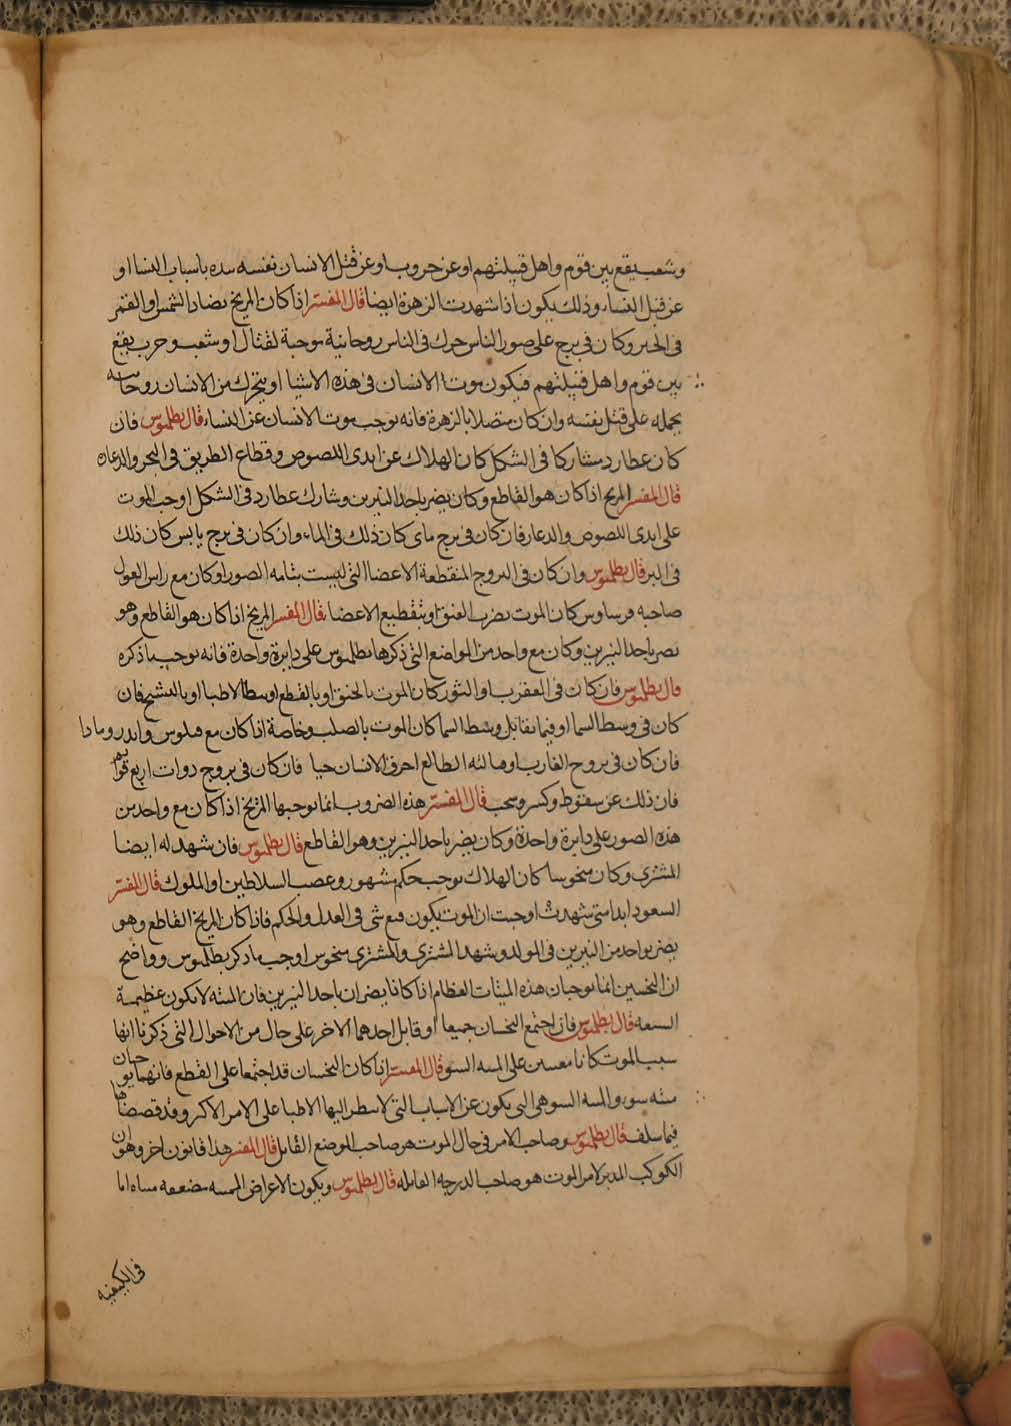 وشعب يقع بين قوم واهل قبيلتهم او عن حروب او عن قتل الانسان نفسه بيده باسباب النسا او
عن قبل النساء وذلك يكون اذا شهدت الزهرة ايضا قال المفسر اذا كان المريخ يضاد الشمس او القمر
فى الحيز وكان فى برج على صور الناس حرك فى الناس روحانية موجبة لقتال او شعب وحرب يقع
بين قوم واهل قبيلتهم فيكون موت الانسان فى هذه الاشيا او يتحرك من الانسان روحانيته
يحمله على قتل نفسه وان كان متصلا بالزهرة فانه يوجب موت الانسان عن النساء قال بطلميوس فان
كان عطارد مشاركا فى الشكل كان الهلاك عن ايدى اللصوص وقطاع الطريق فى البحر والدعاره
قال المفسر المريخ اذا كان هو القاطع وكان يضر باحد النيرين وشارك عطارد فى الشكل اوجب الموت
على ايدى اللصوص والدعار فان كان فى برج مائ كان ذلك فى الماء وان كان فى برج يابس كان ذلك
فى البر قال بطلميوس وان كان فى البروج المنقطعة الاعضا التى ليست بتامه الصور او كان مع راس الغول
صاحبه فرساوس كان الموت بضرب العنق او بتقطيع الاعضاء قال المفسر المريخ اذا كان هو القاطع وهو
يضر باحد النيرين وكان مع واحد من المواضع التى ذكرها بطلميوس على دايرة واحدة فانه يوجب ما ذكره
قال بطلميوس فان كان فى العقرب او الثور كان الموت بالخنق او بالقطع او بط الاطبا او بالتشنيج فان
كان فى وسط السما او فيما يقابل وسط السما كان الموت بالصلب وخاصة اذا كان مع فيلوس واندروماذا
فان كان فى بروج الغارب او مالئه الطالع احرق الانسان حيا فان كان فى بروج ذوات اربع قوائم
فان ذلك عن سقوط وكسر وسحب قال المفسر هذه الضروب انما يوجبها المريخ اذا كان مع واحد من
هذه الصور على دايرة واحدة وكان يضر باحد النيرين وهو القاطع قال بطلميوس فان شهد له ايضا
المشترى وكان منحوسا كان الهلاك يوجب حكم مشهور وغضب السلاطين او الملوك قال المفسر
السعود ابدا متى شهدت اوجبت ان الموت يكون مع شى فى العدل والحكم فاذا كان المريخ القاطع وهو
يضر بواحد من النيرين فى المولد ويشهد المشترى والمشترى منحوس اوجب ما ذكر بطلميوس وواضح
ان النحسين انما يوجبان هذه الميتات العظام اذا كانا يضران باحد النيرين فان الميته لا تكون عظيمة
السعه قال بطلميوس فان اجتمع النحسان جميعا او قابل احدهما الاخر على حال من الاحوال التى ذكرنا انها
سبب الموت كانا معينين على الميته السو قال المفسر اذا كان النحسان قد اجتمعا على القطع فانهما يوجبان
ميته سو والميته السو هى التى يكون عن الاسباب التى لا ينظر اليها الاطبا على الامر الاكثر وقد قصصناها
فيما سلف قال بطلميوس وصاحب الامر فى حال الموت هو صاحب الموضع القابل قال المفسر هذا قانون اخر وهو ان
الكوكب المدبر لامر الموت هو صاحب الدرجه القابله قال بطلميوس ويكون الاعراض الميته مضعفه اما
فى الكيفيه